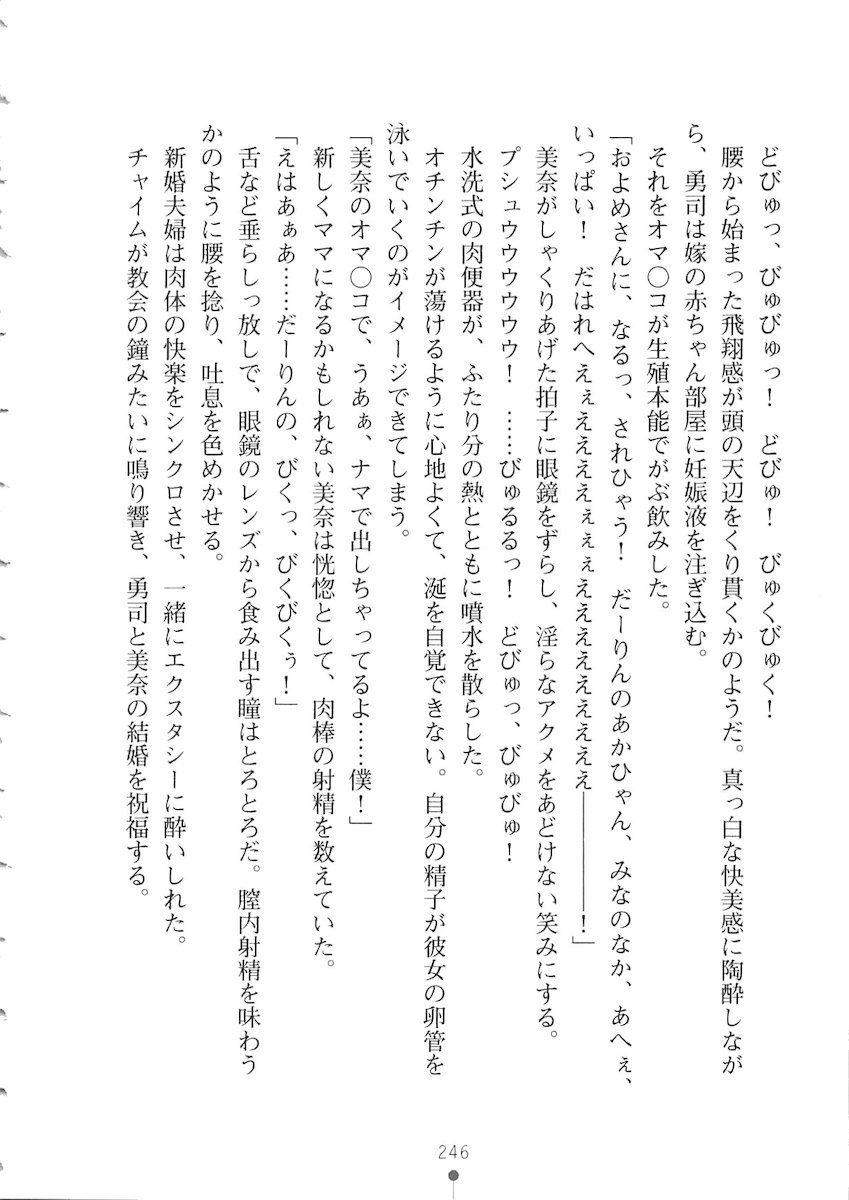 どびゅっ、びゅびゅっ！　どびゅ！　びゅくびゅく！
腰から始まった飛翔感が頭の天辺をくり貫くかのようだ。真っ白な快美感に陶酔しなが
ら、勇司は嫁の赤ちゃん部屋に妊娠液を注ぎ込む。
それをオマ〇コが生殖本能でがぶ飲みした。
「およめさんに、なるっ、されひゃう！　だーりんのあかひゃん、みなのなか、あへぇ、
いっぱい！　だはれへえぇえええええぇぇぇえええええええええ――――！」
美奈がしゃくりあげた拍子に眼鏡をずらし、淫らなアクメをあどけない笑みにする。
プシュウウウウウウ！　……びゅるるっ！　どびゅっ、びゅびゅ！
水洗式の肉便器が、ふたり分の熱とともに噴水を散らした。
オチンチンが蕩けるように心地よくて、涎を自覚できない。自分の精子が彼女の卵管を
泳いでいくのがイメージできてしまう。
「美奈のオマ〇コで、うあぁ、ナマで出しちゃってるよ……僕！」
新しくママになるかもしれない美奈は恍惚として、肉棒の射精を数えていた。
「えはあぁあ……だーりんの、びくっ、びくびくぅ！」
舌など垂らしっ放しで、眼鏡のレンズから食み出す瞳はとろとろだ。膣内射精を味わう
かのように腰を捻り、吐息を色めかせる。
新婚夫婦は肉体の快楽をシンクロさせ、一緒にエクスタシーに酔いしれた。
チャイムが教会の鐘みたいに鳴り響き、勇司と美奈の結婚を祝福する。
246